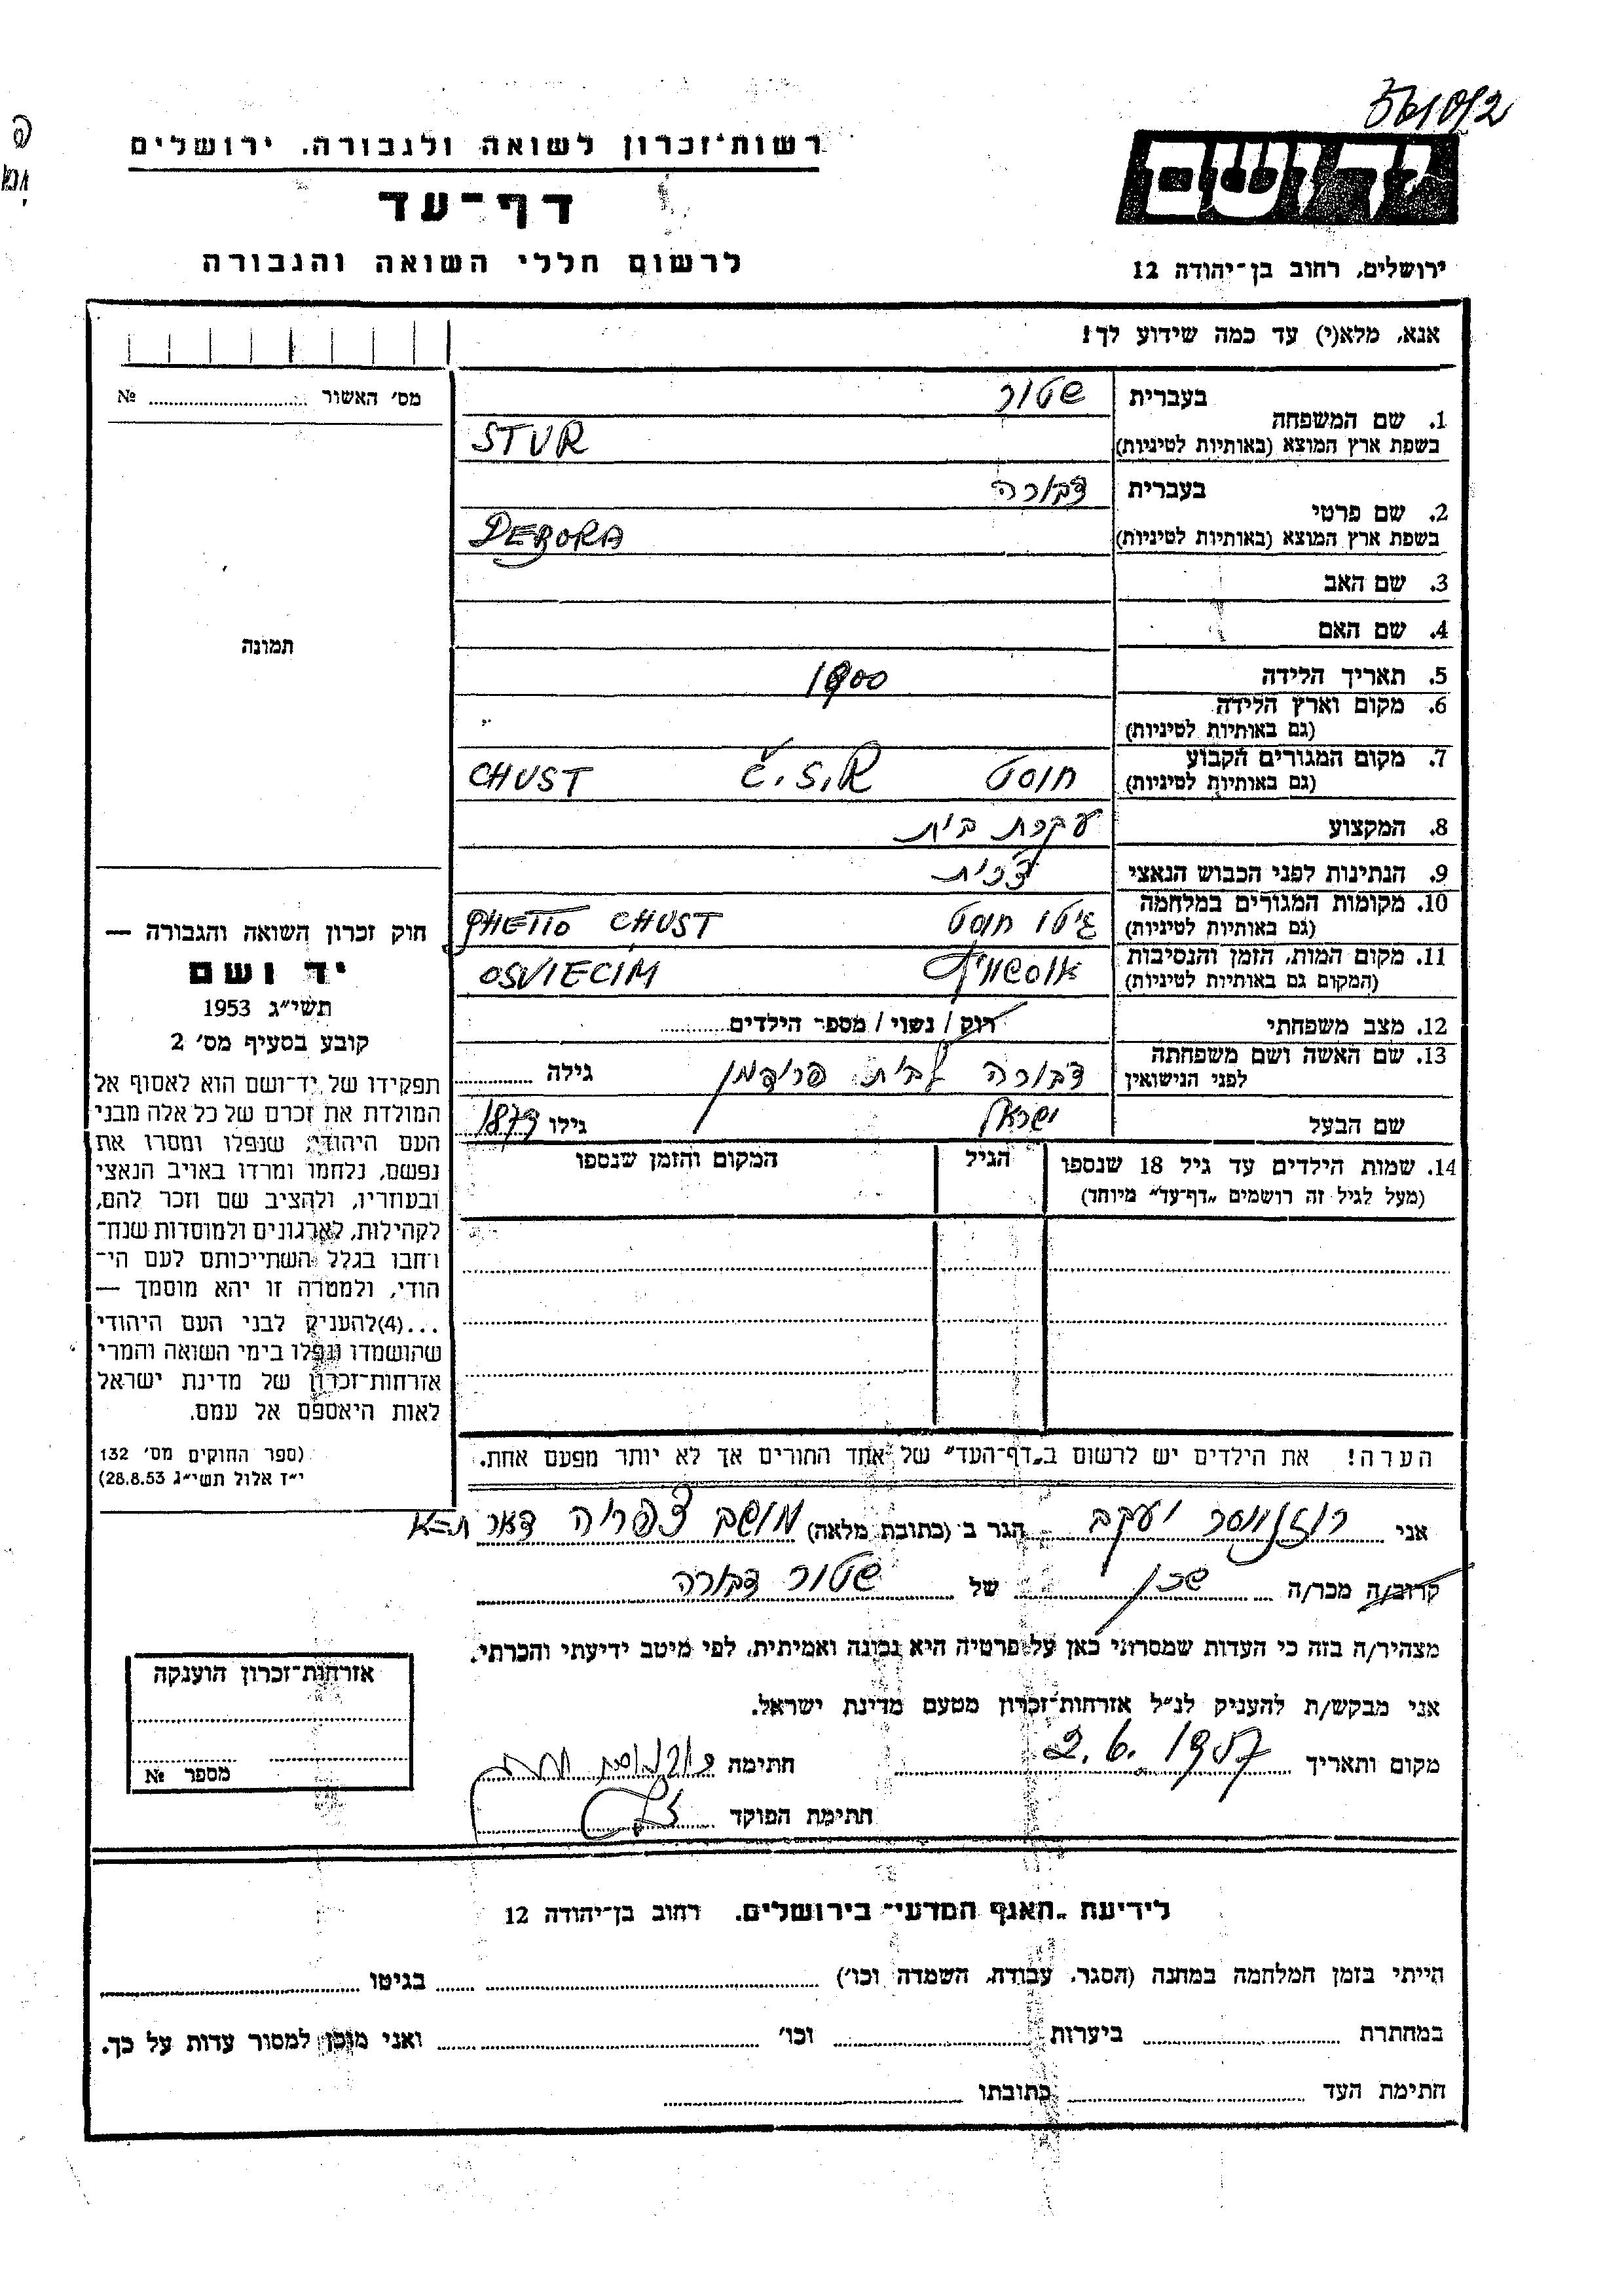 561012
רשות־זכרון לשואה ולגבורה. ירושלים
יד ושם
דף־עד
לרשום חללי השואה והגבורה
ירושלים, רחוב בן־יהודה 12
אנא, מלא(י) עד כמה שידוע לך!
מס׳ האשור № 
בעברית שטור
1. שם המשפחה
בשפת ארץ המוצא (באותיות לטיניות) STUR
בעברית דבורה
2. שם פרטי
בשפת ארץ המוצא (באותיות לטיניות) DEBORA
3. שם האב
4. שם האם
תמונה
5. תאריך הלידה 1900
6. מקום וארץ הלידה
(גם באותיות לטיניות)
7. מקום המגורים הקבוע
(גם באותיות לטיניות) חוסט Č.S.R CHUST
8. המקצוע עקרת בית
9. הנתינות לפני הכבוש הנאצי צכית
10. מקומות המגורים במלחמה
(גם באותיות לטיניות) גיטו חוסט GHETTO CHUST
11. מקום המות, הזמן והנסיבות
(המקום גם באותיות לטיניות) אושוויץ OSVIECIM
12. מצב משפחתי רוק / נשוי / מספר הילדים
13. שם האשה ושם משפחתה
לפני הנישואין דבורה לבית פרידמן גילה
שם הבעל ישראל גילו 1873
14. שמות הילדים עד גיל 18 שנספו
(מעל לגיל זה רושמים „דף־עד״ מיוחד)
הגיל
המקום והזמן שנספו
חוק זכרון השואה והגבורה —
יד ושם
תשי״ג 1953
קובע בסעיף מס׳ 2
תפקידו של יד־ושם הוא לאסוף אל
המולדת את זכרם של כל אלה מבני
העם היהודי, שנפלו ומסרו את
נפשם, נלחמו ומרדו באויב הנאצי
ובעוזריו, ולהציב שם וזכר להם,
לקהילות, לארגונים ולמוסדות שנח־
רחבו בגלל השתייכותם לעם הי־
הודי, ולמטרה זו יהא מוסמך —
...(4)להעניק לבני העם היהודי
שהושמדו ונפלו בימי השואה והמרי
אזרחות־זכרון של מדינת ישראל
לאות היאספם אל עמם.
(ספר החוקים מס׳ 132
י״ז אלול תשי״ג 28.8.53)
הערה! את הילדים יש לרשום ב„דף־העד״ של אחד ההורים אך לא יותר מפעם אחת.
אני רוזנוסר יעקב הגר ב (כתובת מלאה) מושב צפריה דאר ת-א
קרוב/ה מכר/ה שכן של שטור דבורה
מצהיר/ה בזה כי העדות שמסרתי כאן על פרטיה היא נכונה ואמיתית, לפי מיטב ידיעתי והכרתי.
אני מבקש/ת להעניק לנ״ל אזרחות־זכרון מטעם מדינת ישראל.
מקום ותאריך 2.6.1957 חתימה
חתימת הפוקד
אזרחות־זכרון הוענקה
מספר №
לידיעת „האגף המדעי״ בירושלים, רחוב בן־יהודה 12
הייתי בזמן המלחמה במחנה (הסגר, עבודה, השמדה וכו׳) בגיטו
במחתרת ביערות וכו׳ ואני מוכן למסור עדות על כך.
חתימת העד כתובתו